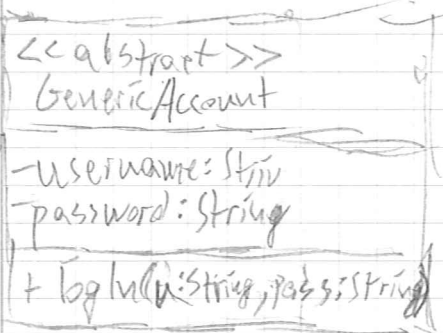 <<abstract>>
GenericAccount
-username: String
-password: String
+ logIn(u:String, pass:String)